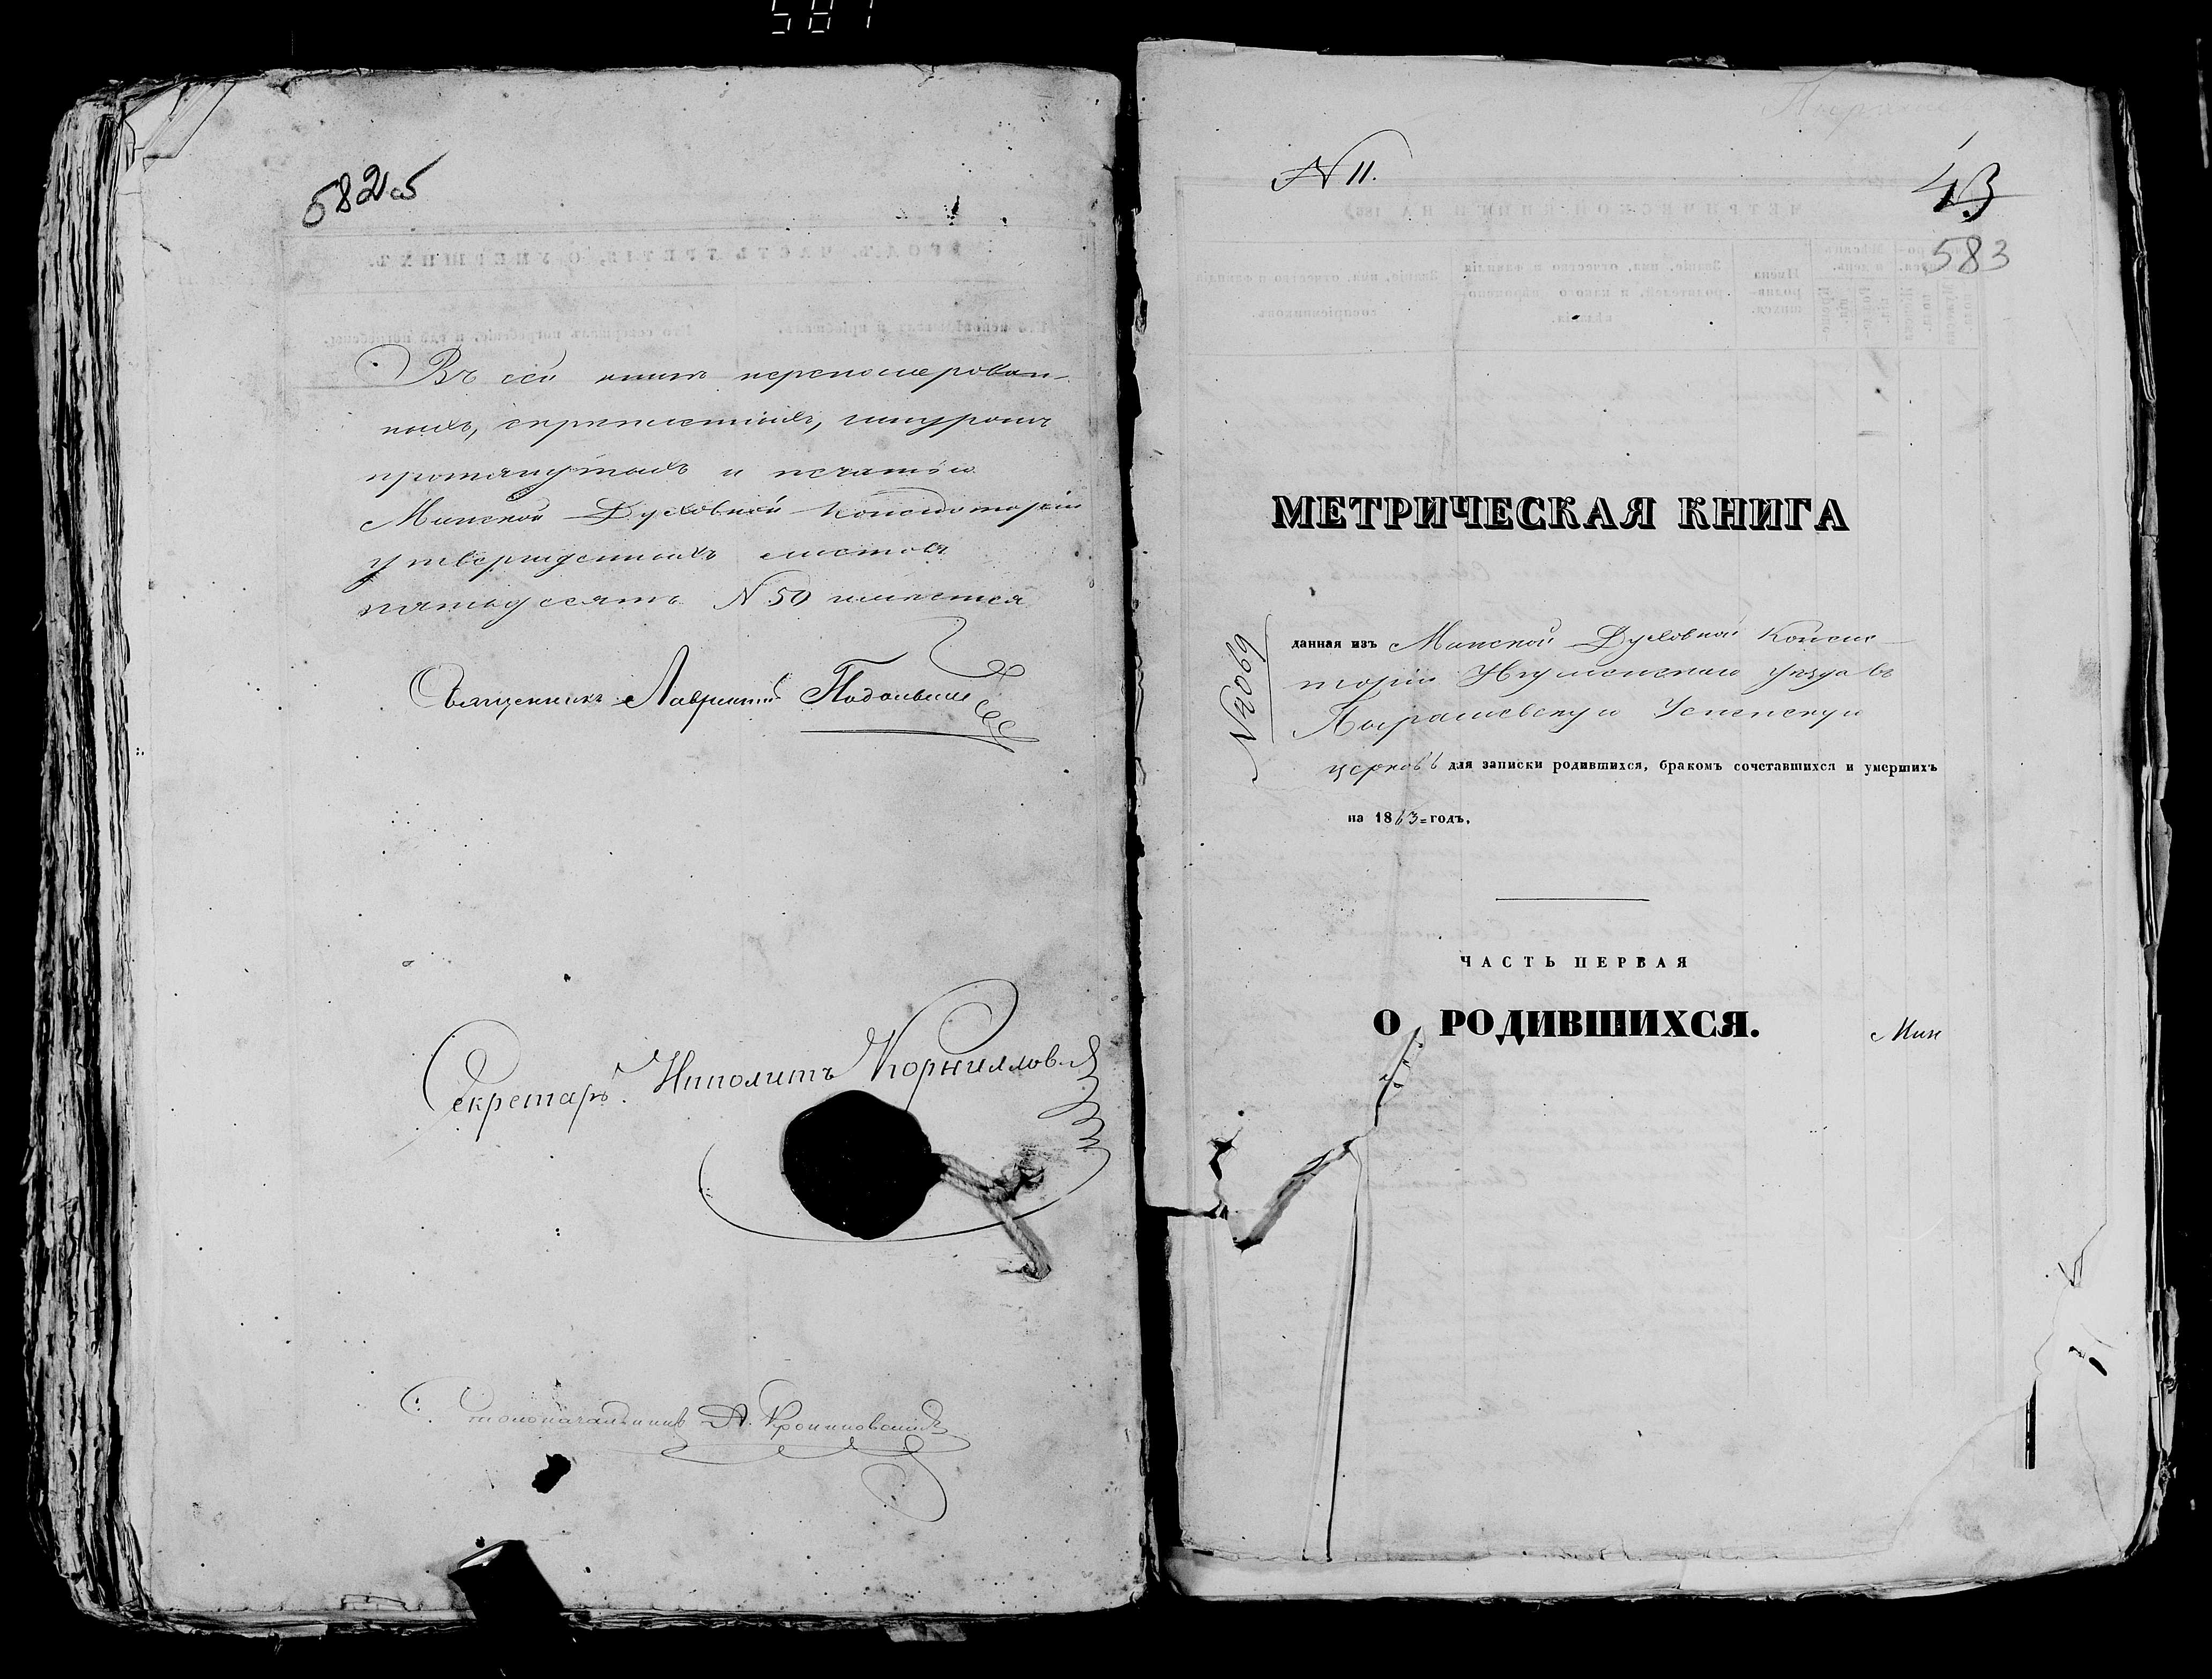 587
582об
Въ сей книгѣ переномерован-
ныхъ, скрепленныхъ, шнуромъ
протянутыхъ и печатью
Минской Духовной Консисторіи
утвержденныхъ листовъ
пятьдесятъ N 50 имѣется
Священникъ Лаврентій
Секретарь Ипполитъ Корнилловъ
Столоначальникъ А.
N 11.
43
583
МЕТРИЧЕСКАЯ КНИГА
N 2069
данная изъ Минской Духовной Консис
торіи Игуменскаго уѣзда въ
Пырашевскую Успенскую
церковь для записки родившихся, бракомъ сочетавшихся и умершихъ
на 1863 годъ.
ЧАСТЬ ПЕРВАЯ
О РОДИВШИХСЯ.
Мин